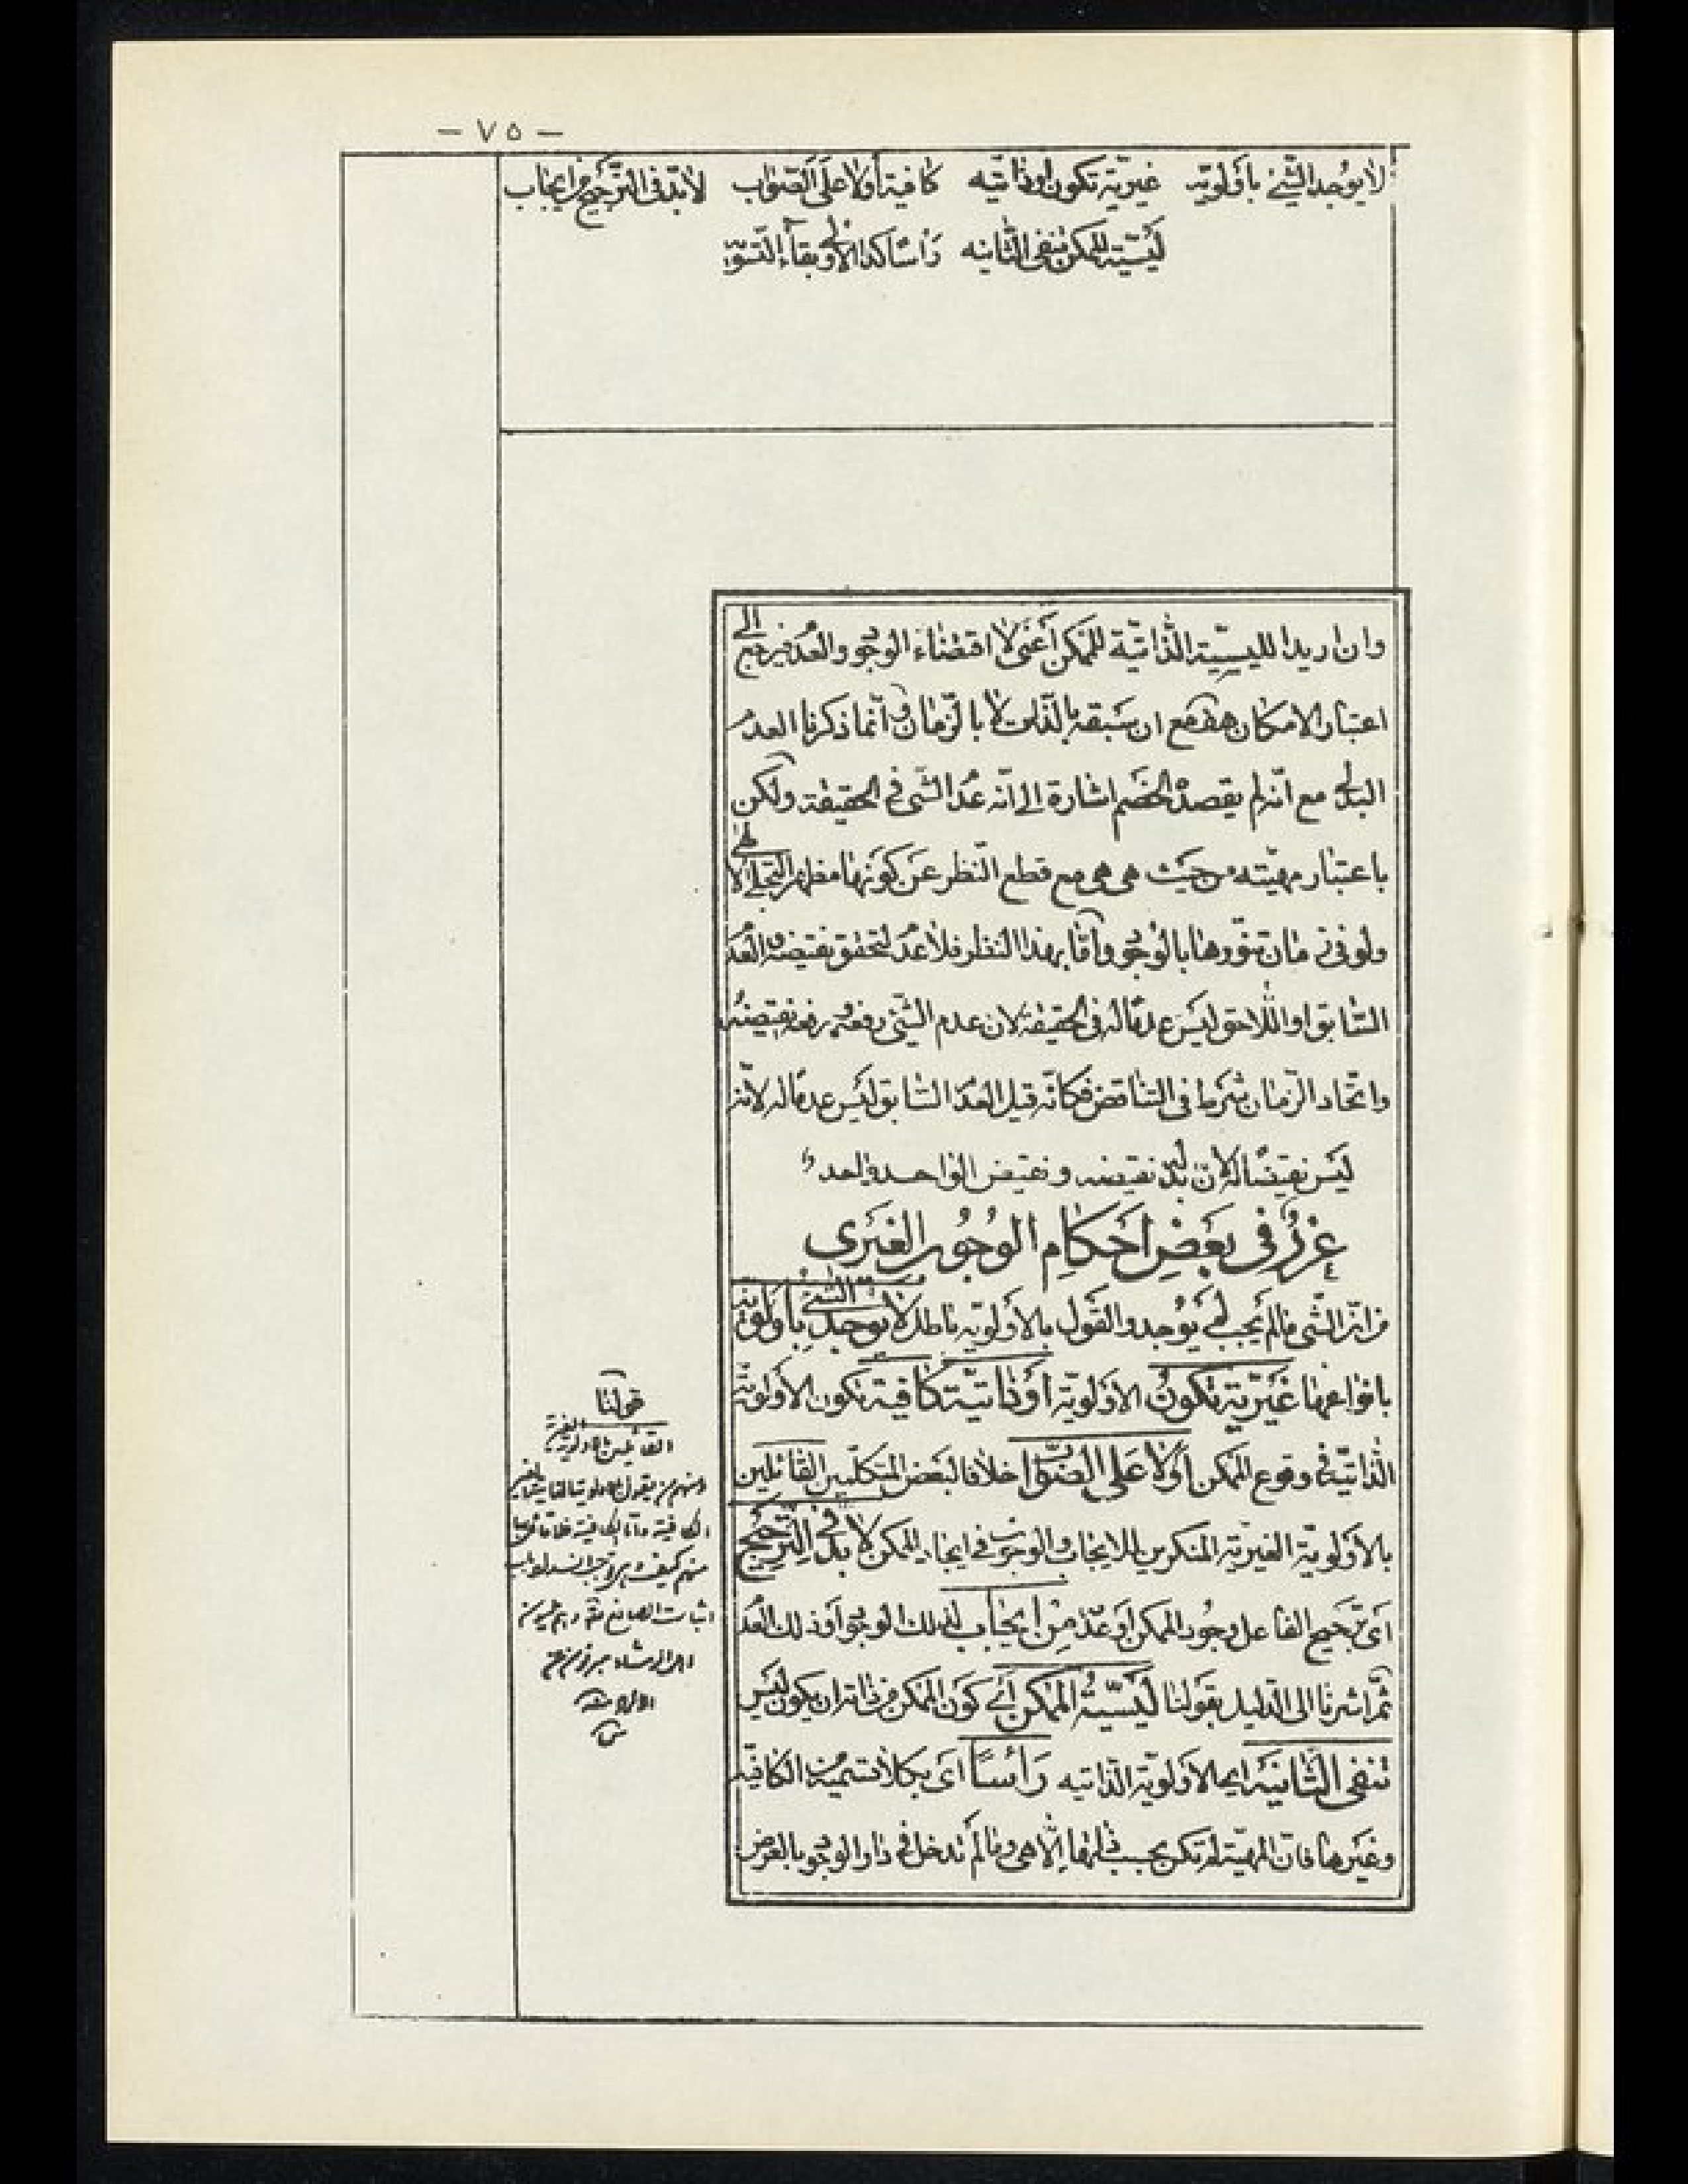 - ٧٥ -
لا يوجد الشّئ بأولويّه غيريّة تكون أو ذاتيّه كافية أو لا على الصّواب لا بدّ فى التّرجيح من ايجاب
ليسيّة الممكن تنفى الثّانيه رأسا كذا الأولى بقاء التّسويه
وان اريد الليسيّة الذّاتيّة للممكن أعنى لا اقتضاء الوجود والعدم فيرجع الى
اعتبار الامكان هف مع ان سبقه بالذّات لا بالزّمان وانّما ذكرنا العدم
البدلى مع انّه لم يقصده الخصم اشارة الى انّه عدم الشّى فى الحقيقة ولكن
باعتبار مهيّته من حيث هى هى مع قطع النّظر عن كونها مظهر التّجلى الالهى
ولو فى زمان تنوّرها بالوجود وامّا بهذا النظر فلا عدم لتحقق نقيضه والعدم
السّابق او اللّاحق ليس عدما له فى الحقيقة لان عدم الشّئ رفعه ورفعه نقيضه
واتّحاد الزّمان شرط فى التناقض فكانّه قيل العدم السّابق ليس عدما له لانّه
ليس نقيضا له لان بدله نقيضه ونقيض الواحد واحد
غرر فى بعض احكام الوجوب الغيرى
من انّ الشّى ما لم يجب لم يوجد والقول بالأولويّه باطل لا يوجد الشّئ بأولويّة
بانواعها غيريّة تكون الاولويّة أو ذاتيّة كافية تكون الاولويّة
الذّاتيّة فى وقوع الممكن أو لا على الصّواب خلافا لبعض المتكلّمين القائلين
بالأولويّة الغيريّة المنكرين للايجاب والوجوب فى ايجاد الممكن لا بدّ فى التّرجيح
اى ترجيح الفاعل وجود الممكن أو عدمه من ايجاب لذلك الوجود أو ذلك العدم
ثمّ اشرنا الى الدّليل بقولنا ليسيّة الممكن أى كون الممكن من ذاته ان يكون ليس
تنفى الثّانية اى الاولويّة الذّاتيه رأسا اى بكلا قسميه من الكافيّة
وغيرها فانّ المهيّة لم تكن بحسب ذاتها الّا هى وما لم تدخل فى دار الوجود بالعرض
قولنا
القائلين بالاولوية الغيرية
ومنهم من يقول بالاولوية الذاتية الغير
الكافية واما الكافية فلا قائل بها
منهم كيف وهو يوجب انسداد باب
اثبات الصانع